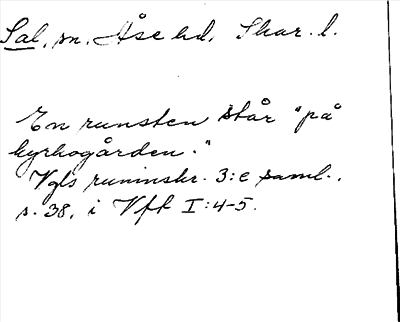 Sal, sn. Åse hd, Skar. l.
En runsten står "på
kyrkogården."
Vgls runinskr. 3:e saml.,
s. 38, i Vft I:4-5.